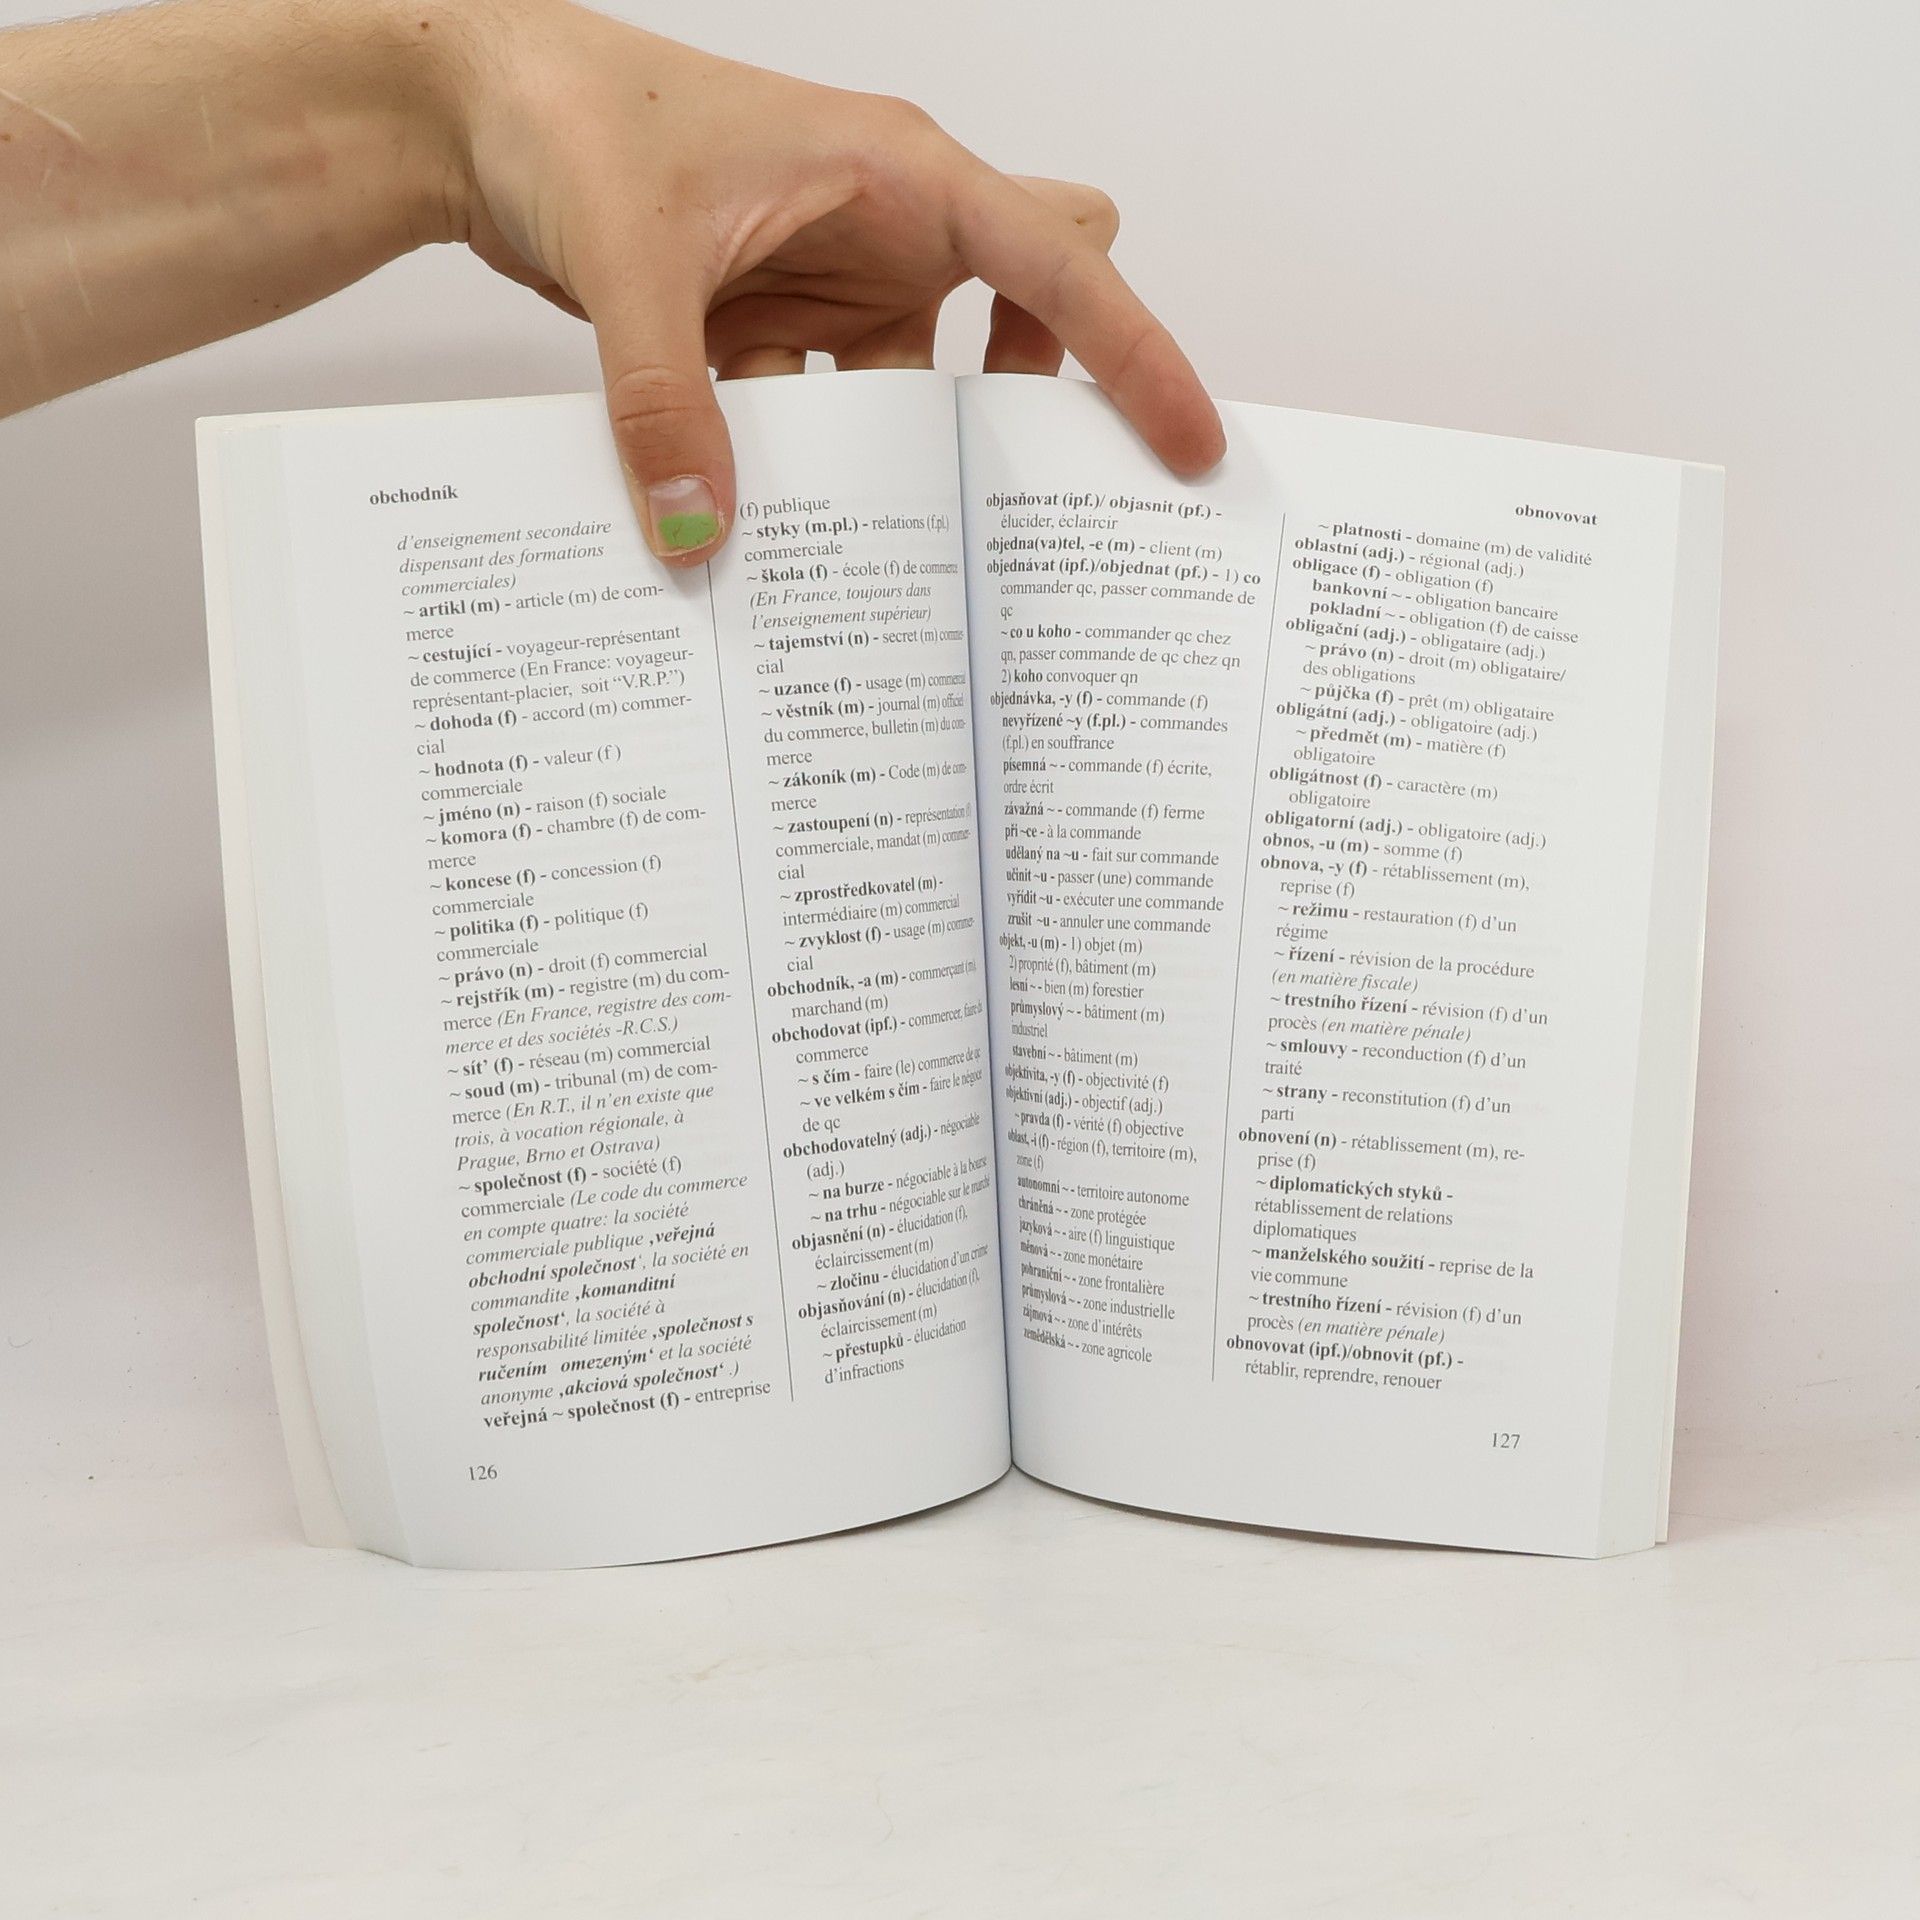 obchodník
d'enseignement secondaire
dispensant des formations
commerciales)
~ artikl (m) - article (m) de com-
merce
~ cestující - voyageur-représentant
de commerce (En France: voyageur-
représentant-placier, soit “V.R.P.”)
~ dohoda (f) - accord (m) commer-
cial
~ hodnota (f) - valeur (f )
commerciale
~ jméno (n) - raison (f) sociale
~ komora (f) - chambre (f) de com-
merce
~ koncese (f) - concession (f)
commerciale
~ politika (f) - politique (f)
commerciale
~ právo (n) - droit (f) commercial
~ rejstřík (m) - registre (m) du com-
merce (En France, registre des com-
merce et des sociétés -R.C.S.)
~ sít’ (f) - réseau (m) commercial
~ soud (m) - tribunal (m) de com-
merce (En R.T., il n’en existe que
trois, à vocation régionale, à
Prague, Brno et Ostrava)
~ společnost (f) - société (f)
commerciale (Le code du commerce
en compte quatre: la société
commerciale publique ‚veřejná
obchodní společnost‘, la société en
commandite ‚komanditní
společnost‘, la société à
responsabilité limitée ‚společnost s
ručením omezeným‘ et la société
anonyme ‚akciová společnost‘ .)
veřejná ~ společnost (f) - entreprise
(f) publique
~ styky (m.pl.) - relations (f.pl.)
commerciale
~ škola (f) - école (f) de commerce
(En France, toujours dans
l’enseignement supérieur)
~ tajemství (n) - secret (m) commer-
cial
~ uzance (f) - usage (m) commercial
~ věstník (m) - journal (m) officiel
du commerce, bulletin (m) du com-
merce
~ zákoník (m) - Code (m) de com-
merce
~ zastoupení (n) - représentation (f)
commerciale, mandat (m) commer-
cial
~ zprostředkovatel (m) -
intermédiaire (m) commercial
~ zvyklost (f) - usage (m) commer-
cial
obchodník, -a (m) - commerçant (m),
marchand (m)
obchodovat (ipf.) - commercer, faire du
commerce
~ s čím - faire (le) commerce de qc
~ ve velkém s čím - faire le négoce
de qc
obchodovatelný (adj.) - négociable
(adj.)
~ na burze - négociable à la bourse
~ na trhu - négociable sur le marché
objasnění (n) - élucidation (f),
éclaircissement (m)
~ zločinu - élucidation d’un crime
objasňování (n) - élucidation (f),
éclaircissement (m)
~ přestupků - élucidation
d’infractions
126
objasňovat (ipf.)/ objasnit (pf.) -
élucider, éclaircir
objedna(va)tel, -e (m) - client (m)
objednávat (ipf.)/objednat (pf.) - 1) co
commander qc, passer commande de
qc
~ co u koho - commander qc chez
qn, passer commande de qc chez qn
2) koho convoquer qn
objednávka, -y (f) - commande (f)
nevyřízené ~y (f.pl.) - commandes
(f.pl.) en souffrance
písemná ~ - commande (f) écrite,
ordre écrit
závažná ~ - commande (f) ferme
při ~ce - à la commande
udělaný na ~u - fait sur commande
učinit ~u - passer (une) commande
vyřídit ~u - exécuter une commande
zrušit ~u - annuler une commande
objekt, -u (m) - 1) objet (m)
2) proprité (f), bâtiment (m)
lesní ~ - bien (m) forestier
průmyslový ~ - bâtiment (m)
industriel
stavební ~ - bâtiment (m)
objektivita, -y (f) - objectivité (f)
objektivní (adj.) - objectif (adj.)
~ pravda (f) - vérité (f) objective
oblast, -i (f) - région (f), territoire (m),
zone (f)
autonomní ~ - territoire autonome
chráněná ~ - zone protégée
jazyková ~ - aire (f) linguistique
měnová ~ - zone monétaire
pohraniční ~ - zone frontalière
průmyslová ~ - zone industrielle
zájmová ~ - zone d’intérêts
zemědělská ~ - zone agricole
obnovovat
~ platnosti - domaine (m) de validité
oblastní (adj.) - régional (adj.)
obligace (f) - obligation (f)
bankovní ~ - obligation bancaire
pokladní ~ - obligation (f) de caisse
obligační (adj.) - obligataire (adj.)
~ právo (n) - droit (m) obligataire/
des obligations
~ půjčka (f) - prêt (m) obligataire
obligátní (adj.) - obligatoire (adj.)
~ předmět (m) - matière (f)
obligatoire
obligátnost (f) - caractère (m)
obligatoire
obligatorní (adj.) - obligatoire (adj.)
obnos, -u (m) - somme (f)
obnova, -y (f) - rétablissement (m),
reprise (f)
~ režimu - restauration (f) d’un
régime
~ řízení - révision de la procédure
(en matière fiscale)
~ trestního řízení - révision (f) d’un
procès (en matière pénale)
~ smlouvy - reconduction (f) d’un
traité
~ strany - reconstitution (f) d’un
parti
obnovení (n) - rétablissement (m), re-
prise (f)
~ diplomatických styků -
rétablissement de relations
diplomatiques
~ manželského soužití - reprise de la
vie commune
~ trestního řízení - révision (f) d’un
procès (en matière pénale)
obnovovat (ipf.)/obnovit (pf.) -
rétablir, reprendre, renouer
127